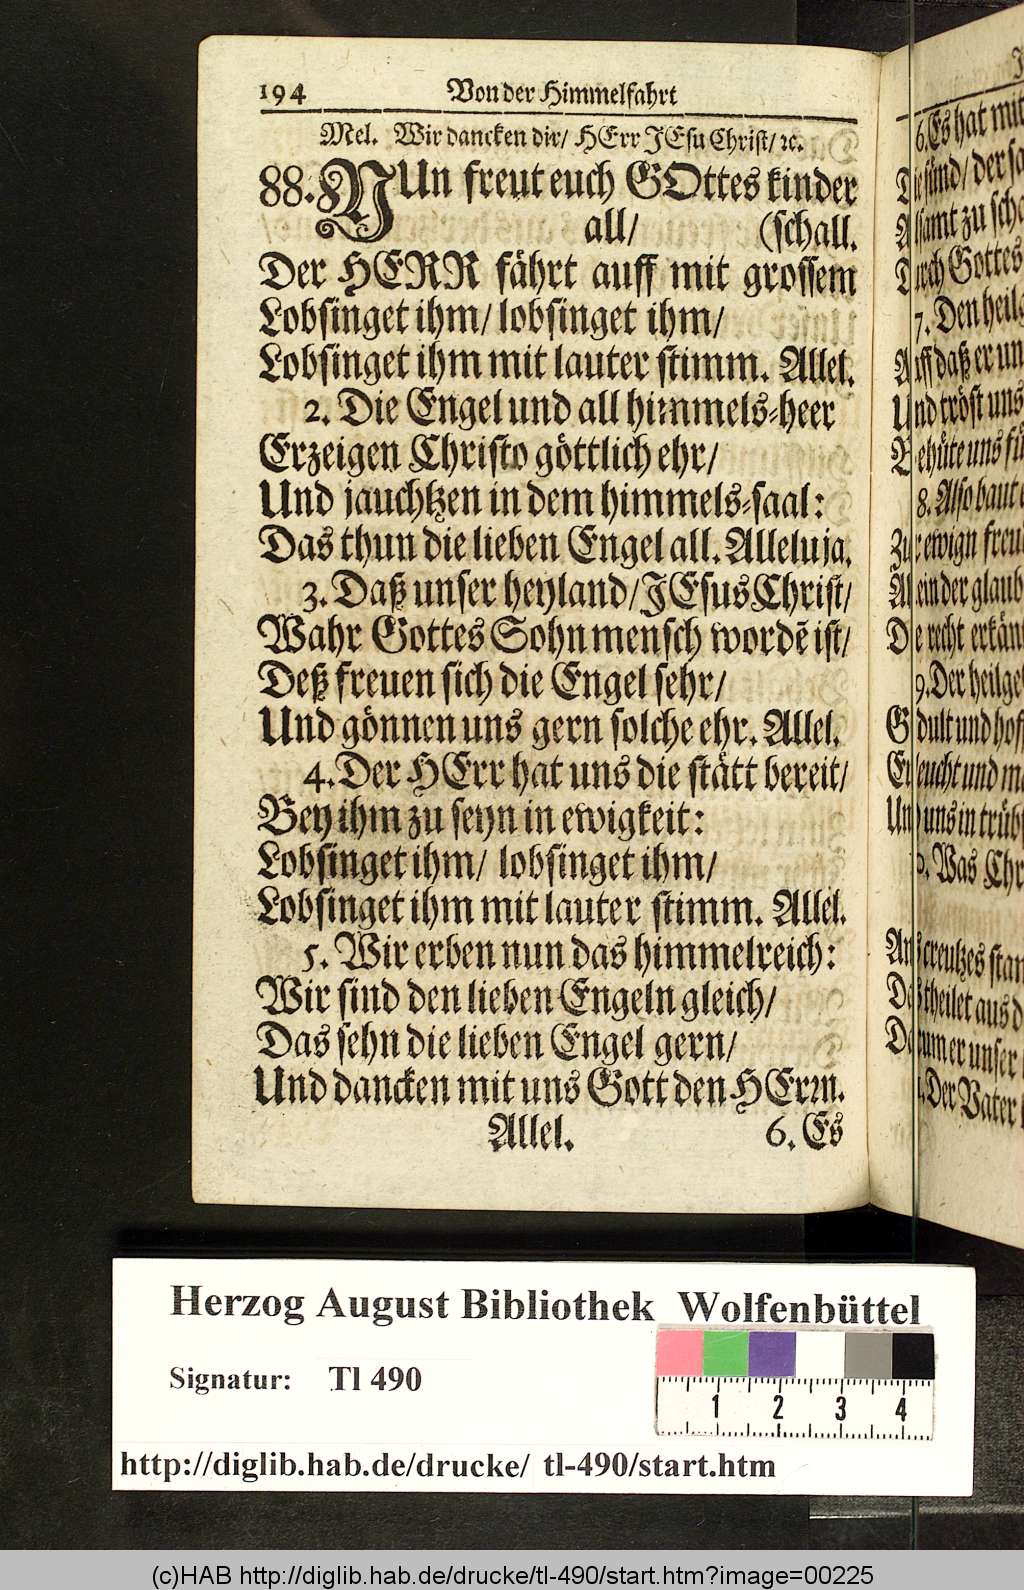 194 Von der Himmelfahrt
Mel. Wir dancken dir/ HErr JEsu Christ/ ꝛc.
88. NUn freut euch GOttes kinder
all/ (schall.
Der HERR fährt auff mit grossem
Lobsinget ihm/ lobsinget ihm/
Lobsinget ihm mit lauter stimm. Allel.
2. Die Engel und all himmels-heer
Erzeigen Christo göttlich ehr/
Und jauchtzen in dem himmels-saal:
Das thun die lieben Engel all. Alleluja.
3. Daß unser heyland/ JEsus Christ/
Wahr Gottes Sohn mensch wordē ist/
Deß freuen sich die Engel sehr/
Und gönnen uns gern solche ehr. Allel.
4. Der HErr hat uns die stätt bereit/
Bey ihm zu seyn in ewigkeit:
Lobsinget ihm/ lobsinget ihm/
Lobsinget ihm mit lauter stimm. Allel.
5. Wir erben nun das himmelreich:
Wir sind den lieben Engeln gleich/
Das sehn die lieben Engel gern/
Und dancken mit uns Gott den HErrn.
Allel. 6. Es
6. Es hat mit
sünd/ der
zu
Gottes
7. Den
daß er
Und tröst uns
uns
8. Also baut
ewign
der
recht
9. Der
und
und
Und uns in
Was
creutzes
theilet aus
unser
Der Vater
Herzog August Bibliothek Wolfenbüttel
Signatur: Tl 490
1 2 3 4
http://diglib.hab.de/drucke/ tl-490/start.htm
(c)HAB http://diglib.hab.de/drucke/tl-490/start.htm?image=00225